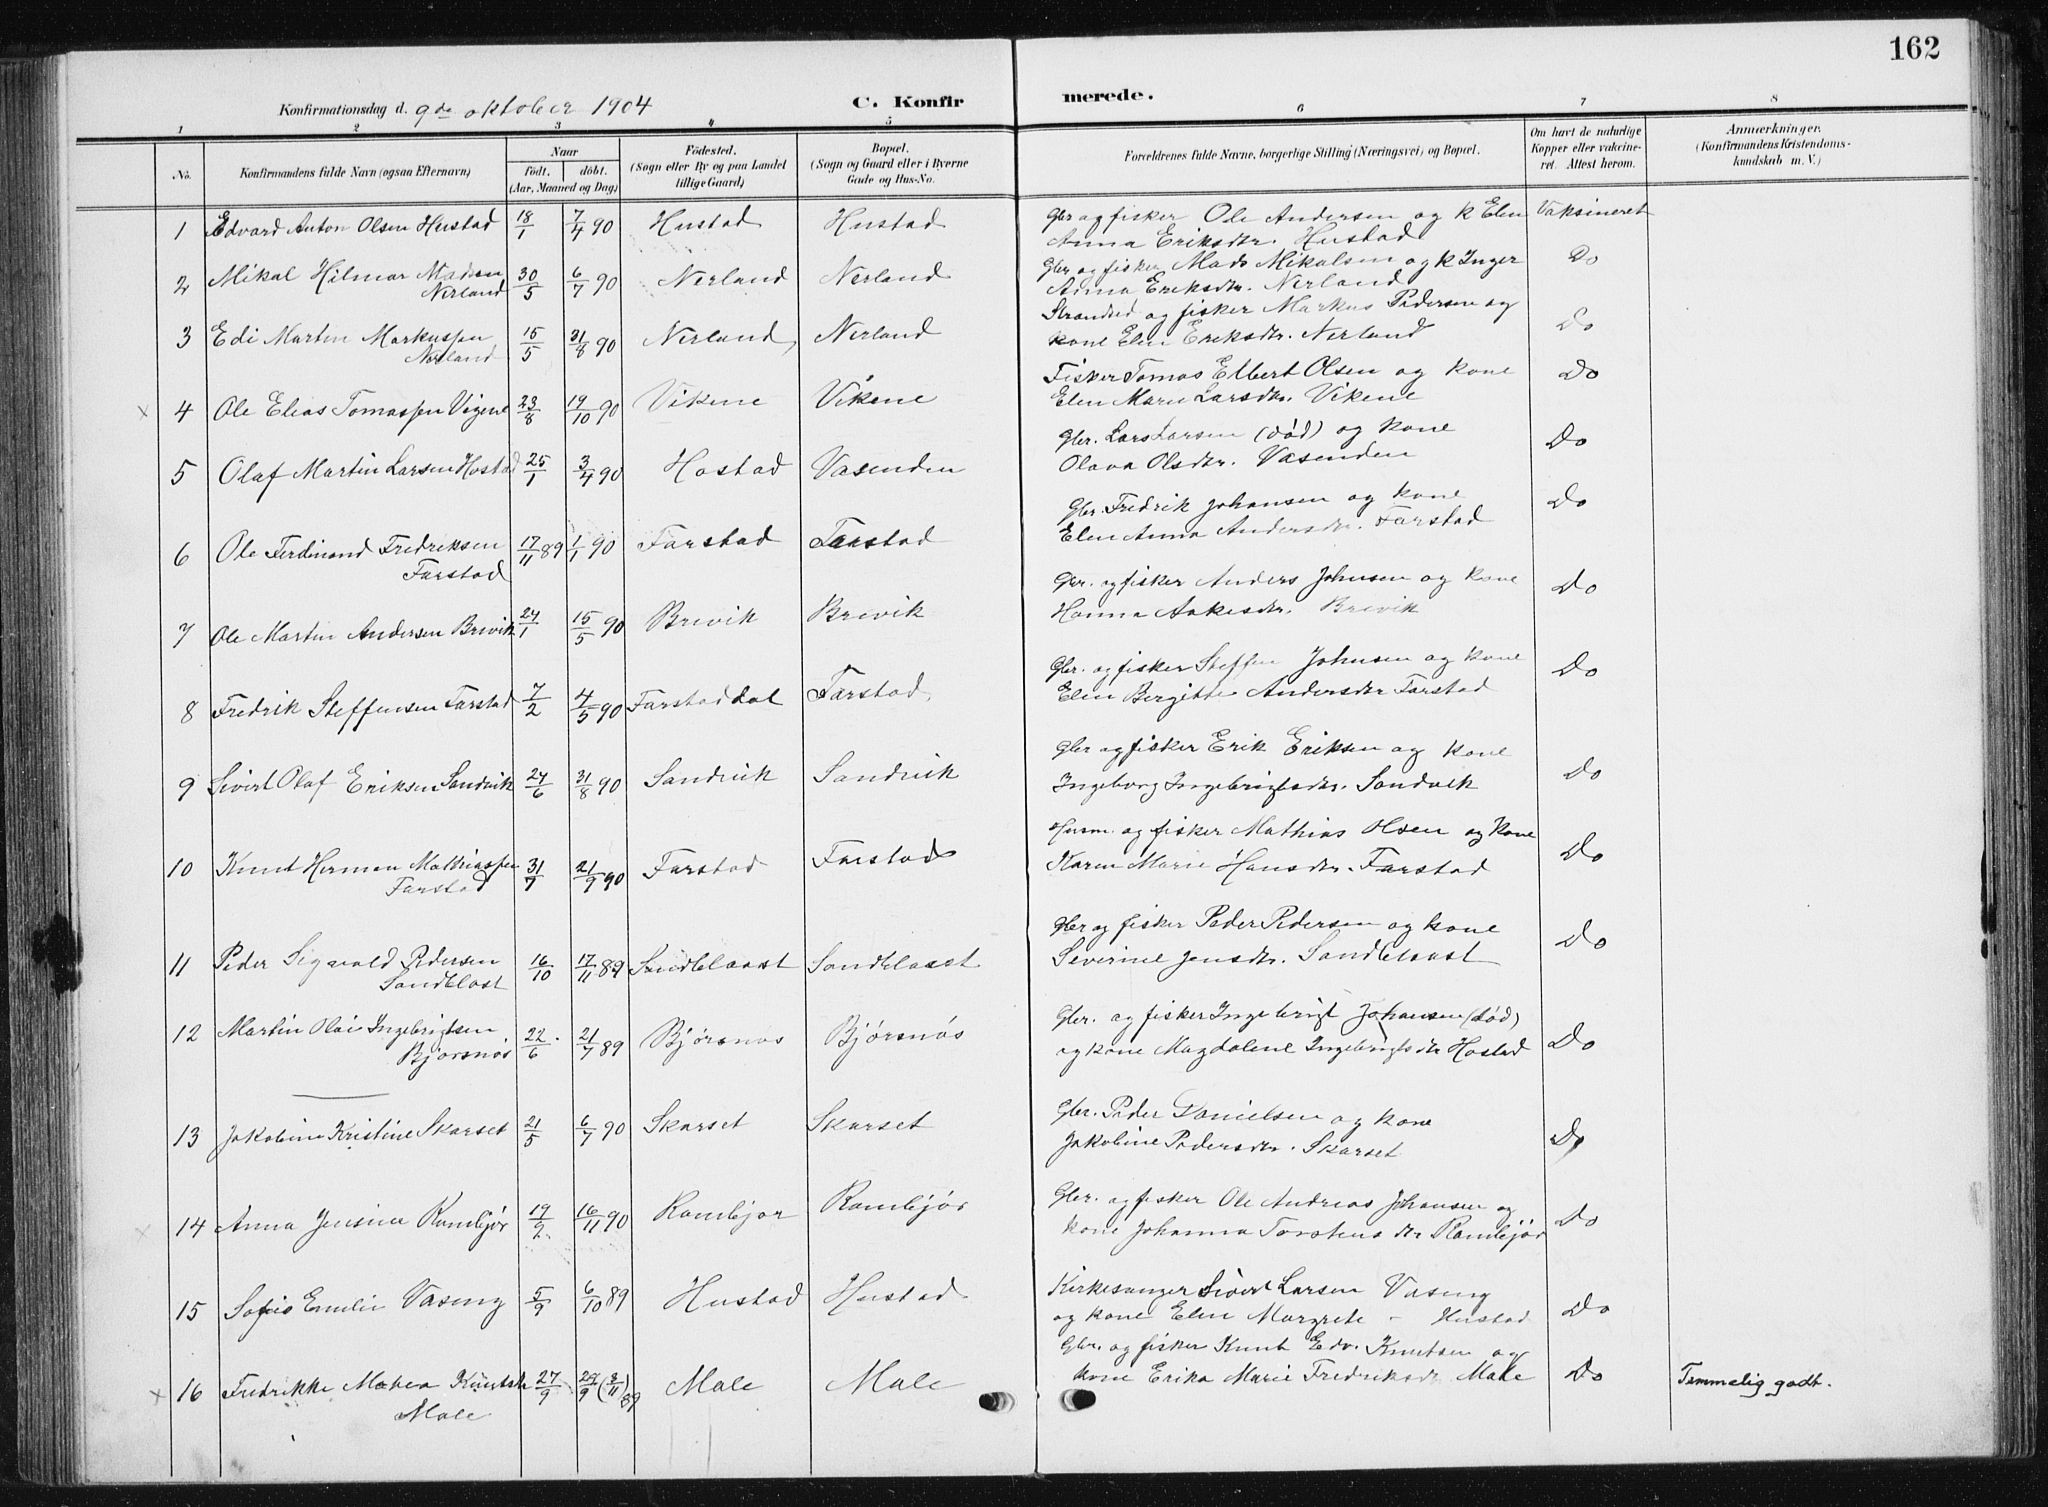 162
Konfirmationsdag d. 9de oktober 1904 C. Konfirmerede.
1 2 3 4 5 6 7 8
No. Konfirmandens fulde Navn (ogsaa Efternavn) Naar født. døbt. (Aar, Maaned og Dag) Fødested. (Sogn eller By og paa Landet tillige Gaard) Bopæl. (Sogn og Gaard eller i Byerne Gade og Hus-No. Forældrenes fulde Navne, borgerlige Stilling (Næringsvei) og Bopæl. Om havt de naturlige Kopper eller vakcineret. Attest herom. Anmærkninger. (Konfirmandens Kristendomskundskab m. V.)
1 Edvard Anton Olsen Hustad 18/1 7/4 90 Hustad Hustad Gbr og fisker Ole Andersen og k Elen Vaksineret
Anna Eriksdtr. Hustad
2 Mikal Hilmar Madsen 30/5 6/7 90 Nerland Nerland Gbr og fisker Mads Mikalsen og k Inger Do
Nerland Anna Eriksdtr. Nerland
3 Edi Martin Markussen 15/5 31/8 90 Nerland Nerland Strandsid og fisker Markus Pedersen og Do
Nerland kone Elen Eriksdtr. Nerland
4 Ole Elias Tomassen Vigene 23/8 19/10 90 Vikene Vikene Fisker Tomas Elbert Olsen og kone Do
Elen Marie Larsdtr. Vikene
5 Olaf Martin Larsen Hostad 25/1 3/4 90 Hostad Vasenden Gbr. Lars Larsen (død) og kone Do
Olava Olsdtr. Vasenden
6 Ole Ferdinand Fredriksen 17/11 89 1/1 90 Farstad Farstad Gbr. Fredrik Johansen og kone Do
Farstad Elen Anna Andersdtr. Farstad
7 Ole Martin Andersen Brevik 24/1 15/5 90 Brevik Brevik Gbr. og fisker Anders Johnsen og kone Do
Hanna Aakesdtr. Brevik
8 Fredrik Steffensen Farstad 7/2 4/5 90 Farstaddal Farstad Gbr. og fisker Steffen Johnsen og kone Do
Elen Bergitte Andersdtr Farstad
9 Sivert Olaf Eriksen Sandvik 24/6 31/8 90 Sandvik Sandvik Gbr og fisker Erik Eriksen og kone Do
Ingeborg Ingebrigtsdtr. Sandvik
10 Knut Herman Mathiassen 31/7 21/9 90 Farstad Farstad Husm. og fisker Mathias Olsen og kone Do
Farstad Karen Marie Hansdtr. Farstad
11 Peder Sigvald Pedersen 16/10 17/11 89 Sandblaast Sandblaast Gbr og fisker Peder Pedersen og kone Do
Sandblast Severine Jensdtr. Sandblaast
12 Martin Olai Ingebrigtsen 22/6 21/7 89 Bjørsnøs Bjørsnøs Gbr. og fisker Ingebrigt Johansen (død)
Bjørsnøs og kone Magdalene Ingebrigtsdtr Hostad Do
13 Jakobine Kristine Skarset 21/5 6/7 90 Skarset Skarset Gbr. Peder Danielsen og kone Do
Jakobine Pedersdtr. Skarset
14 Anna Jensine Rambjør 19/9 16/11 90 Rambjør Rambjør Gbr. og fisker Ole Andreas Johansen og Do
kone Johanna Torstensdtr Rambjør
15 Sofie Emilie Vaseng 5/9 6/10 89 Hustad Hustad Kirkesanger Sivert Larsen Vaseng Do
og kone Elen Margrete - Hustad
16 Fredrikke Mahea Knutsdtr 27/9 29/9 (3/11) 89 Male Male Gbr. og fisker Knut Edv. Knutsen og Do Temmelig godt.
Male kone Erika Marie Fredriksdtr Male